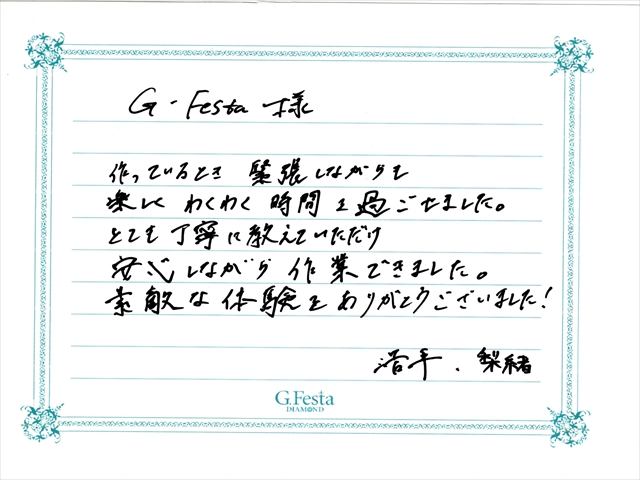 G.Festa 様
作っているとき 緊張しながらも
楽しく わくわく 時間を過ごせました。
とても丁寧に教えていただけ
安心しながら 作業できました。
素敵な体験をありがとうございました!
浩平、梨緒
G.Festa
DIAMOND